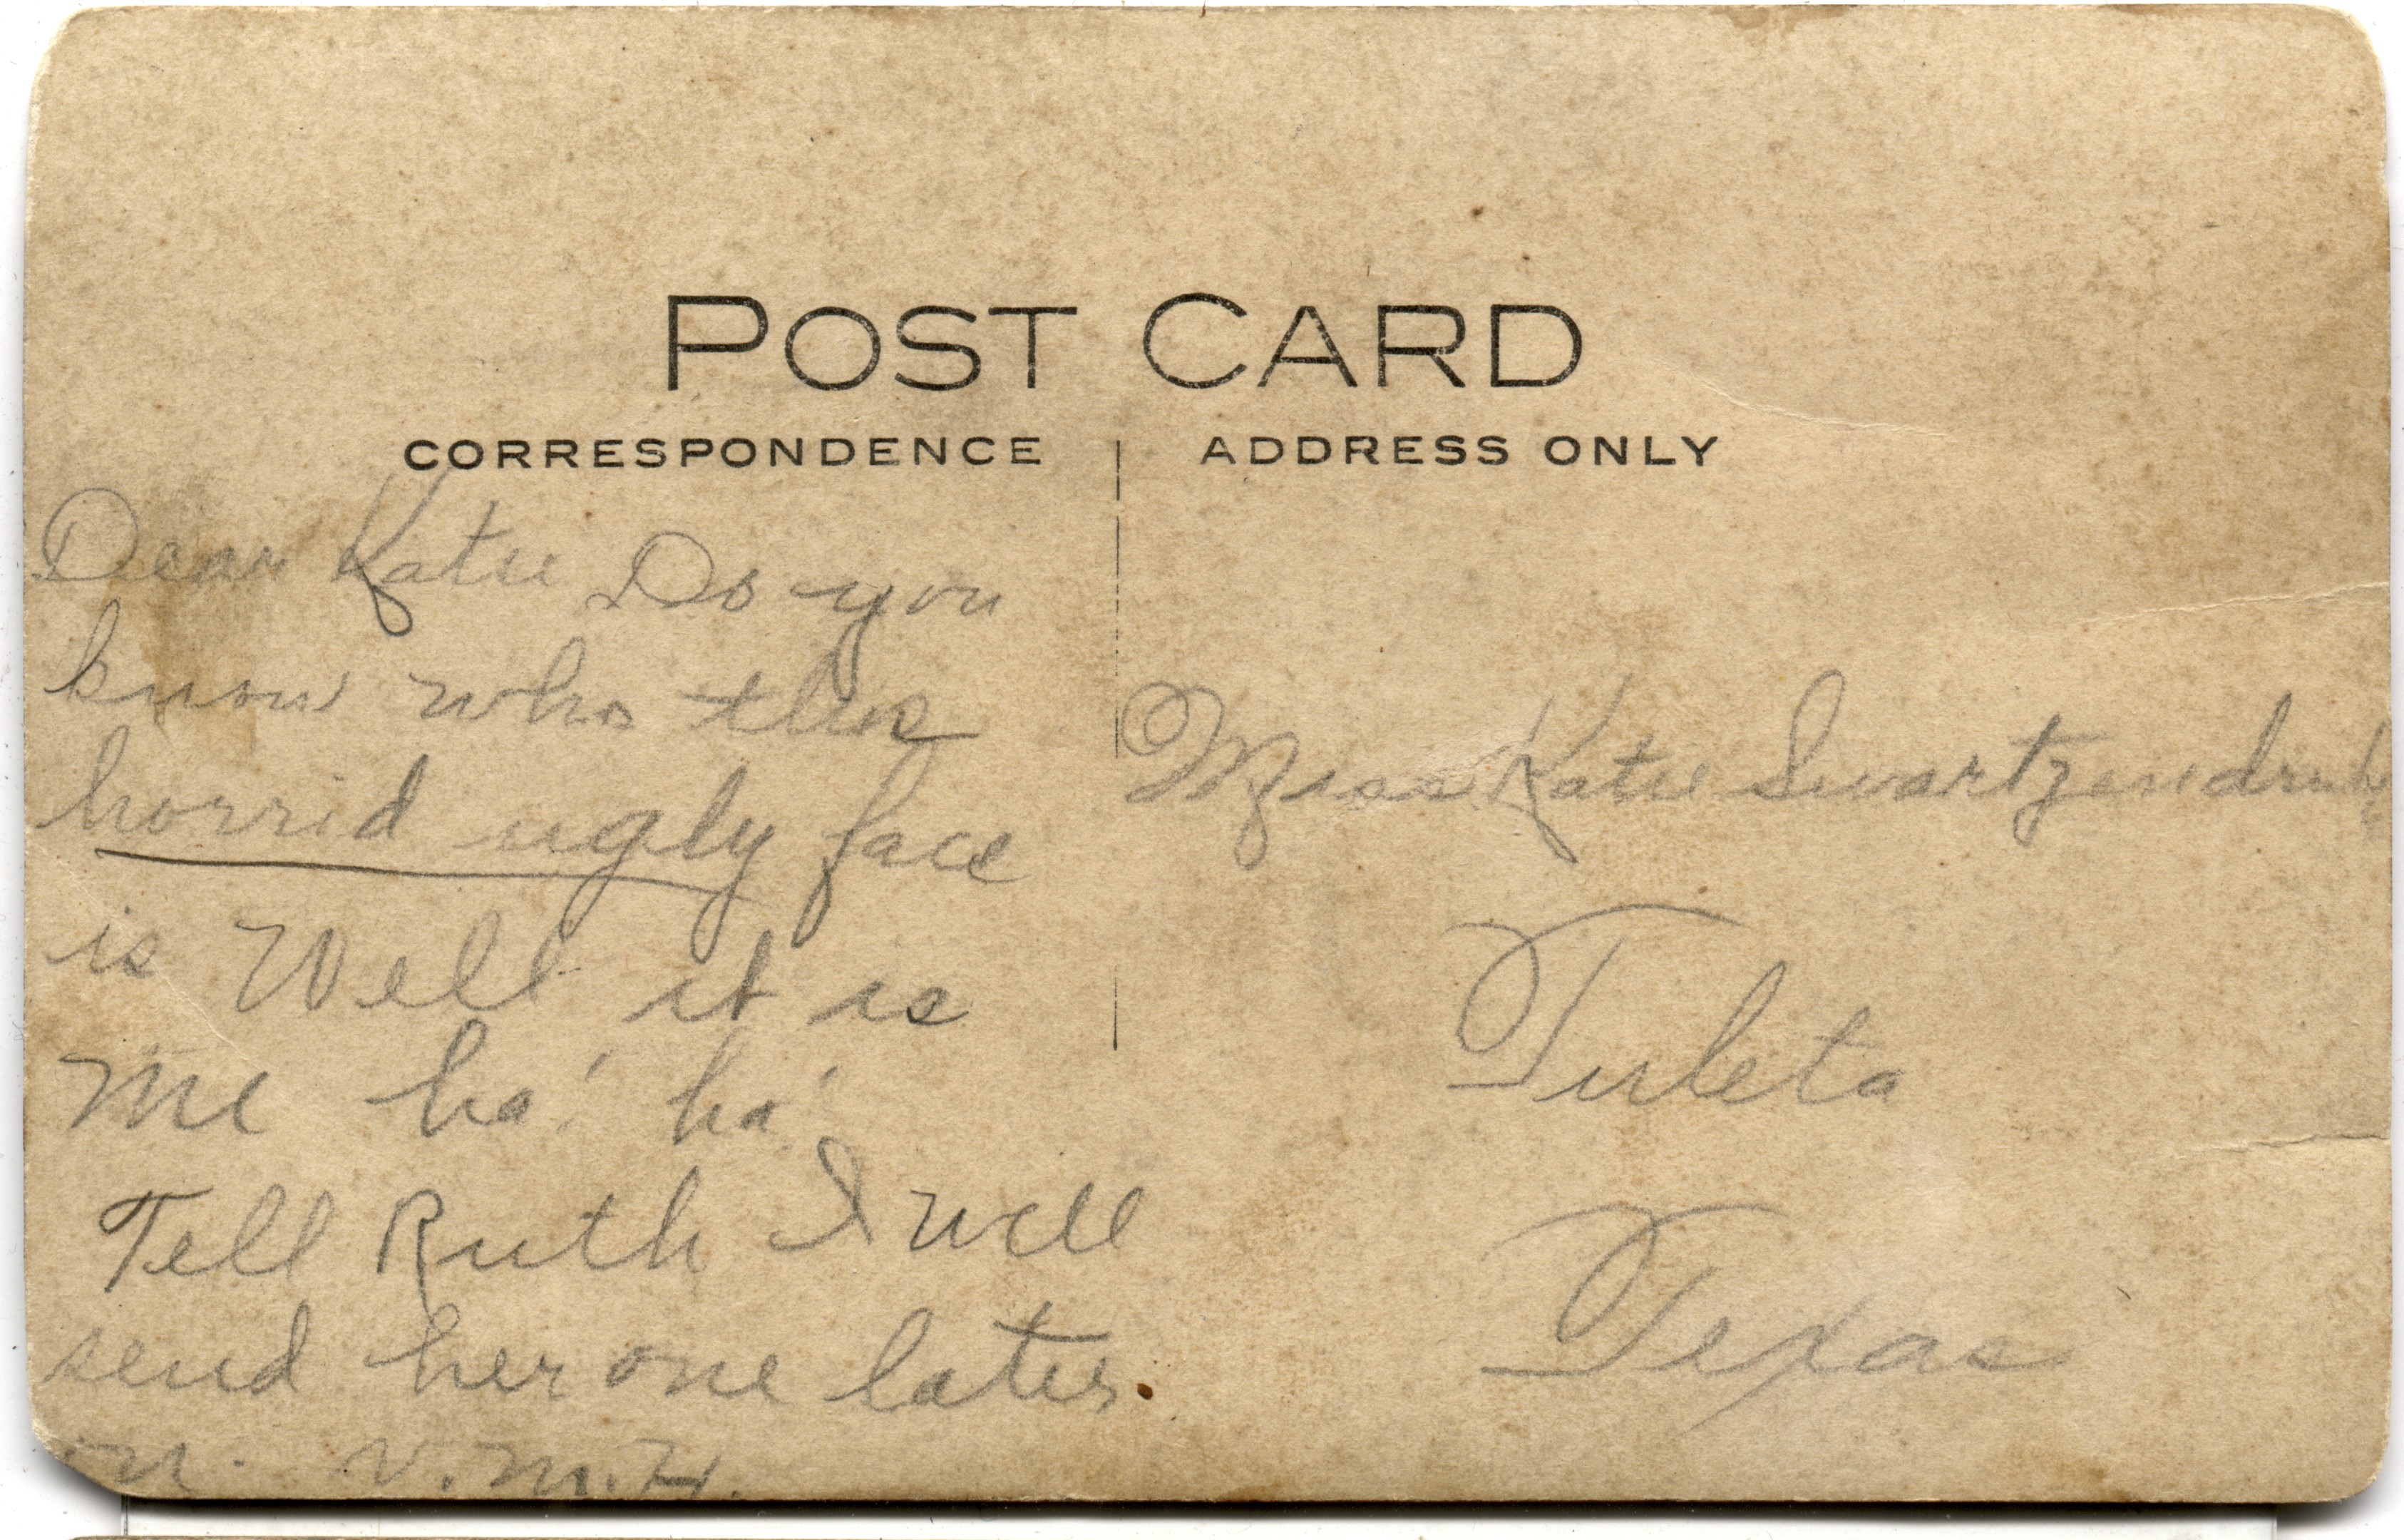 POST CARD
CORRESPONDENCE
ADDRESS ONLY
Dear Katie Do you
know who this
horrid ugly face
is Well it is
me ha! ha!
Tell Ruth I will
send her one later
on. V.M.H.
Miss Katie Swartzendruby
Tuleta
Texas